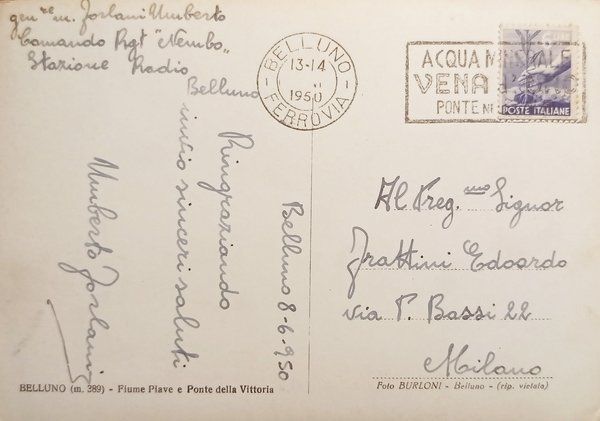 gen.re m. Forlani Umberto
Comando Rgt "Nembo"
Stazione Radio
Belluno
BELLUNO
13-14
VI
1950
FERROVIA
ACQUA MINERALE
VENA d'ORO
PONTE NE
POSTE ITALIANE
Belluno 8-6-950
Ringraziando
invio sinceri saluti
Umberto Forlani
Al Preg.mo Signor
Frattini Edoardo
via P. Bassi 22
Milano
BELLUNO (m. 389) - Fiume Piave e Ponte della Vittoria
Foto BURLONI - Belluno - (rip. vietata)